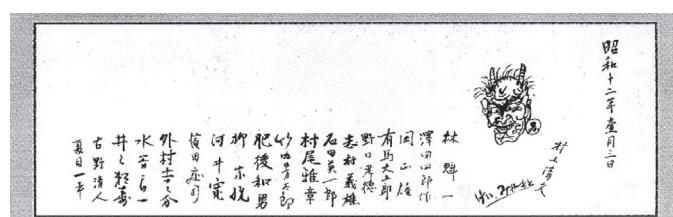 昭和十二年壹月三日
村上清文
林魁一
澤田四郎作
関正雄
有馬大五郎
野口孝徳
志村義雄
石田英一郎
村尾雅章
竹内芳太郎
肥後和男
柳宗悦
河井寛
濱田庄司
外村吉之介
水谷良一
古野清人
夏目一平